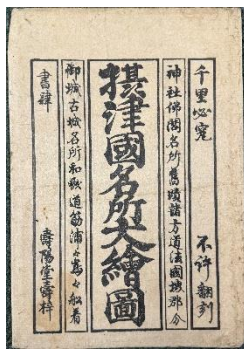 千里必究 不許翻刻
神社佛閣名所舊蹟諸方道法國境郡分
摂津國名所大繪圖
御城古城名所和歌道筋浦々嶌々舩着
書肆 壽陽堂壽梓